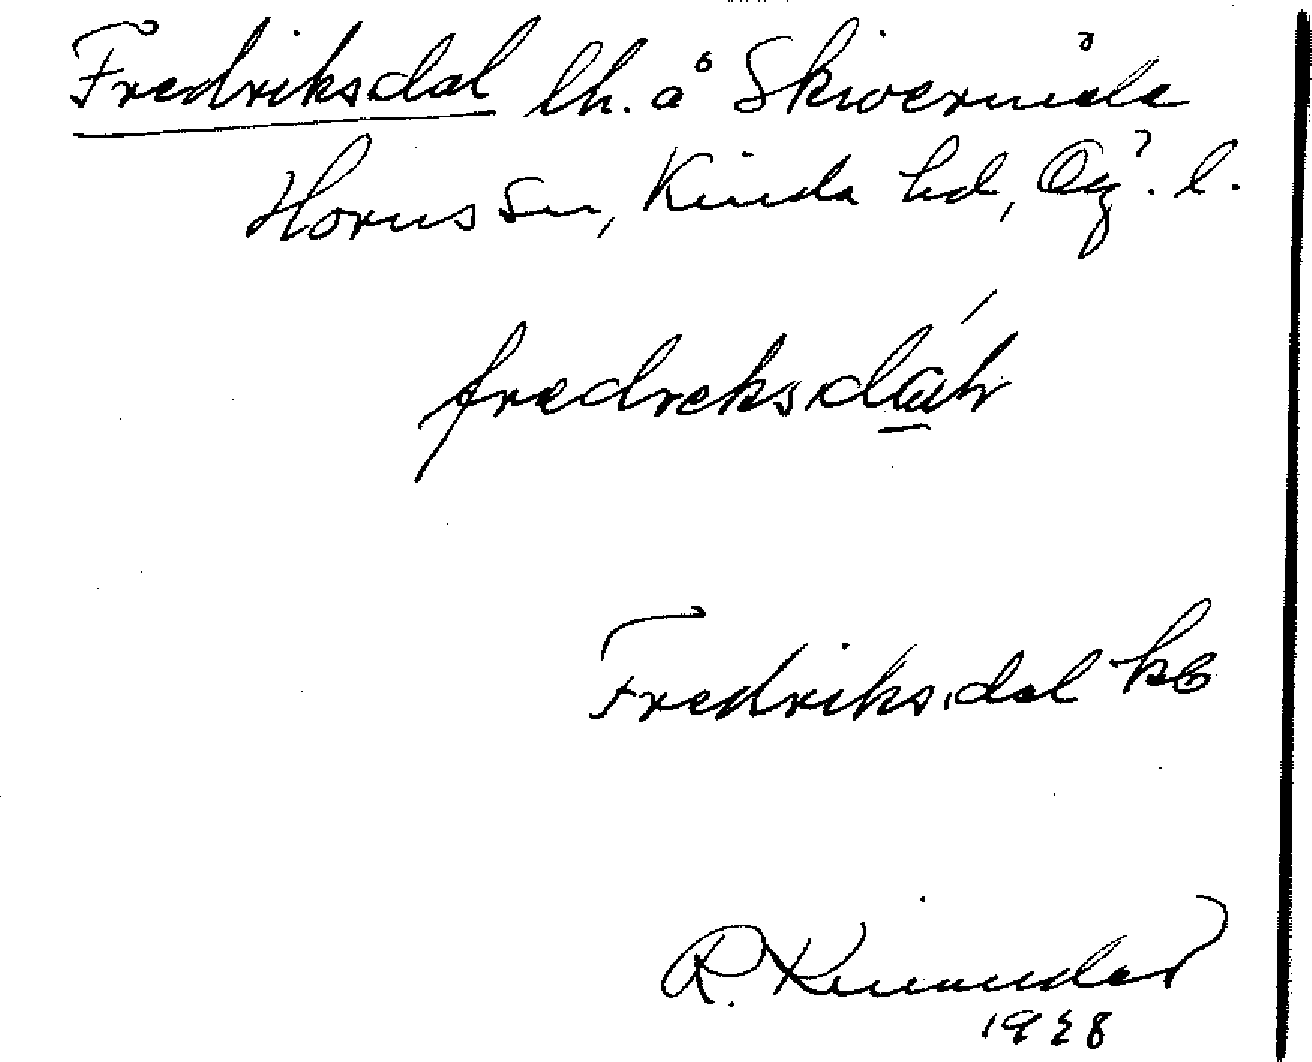 Fredriksdal lh. å
Horns sn, Kinda hd, Ög. l.
fredreksdáh
Fredriksdal kb
R. Kinander
1928